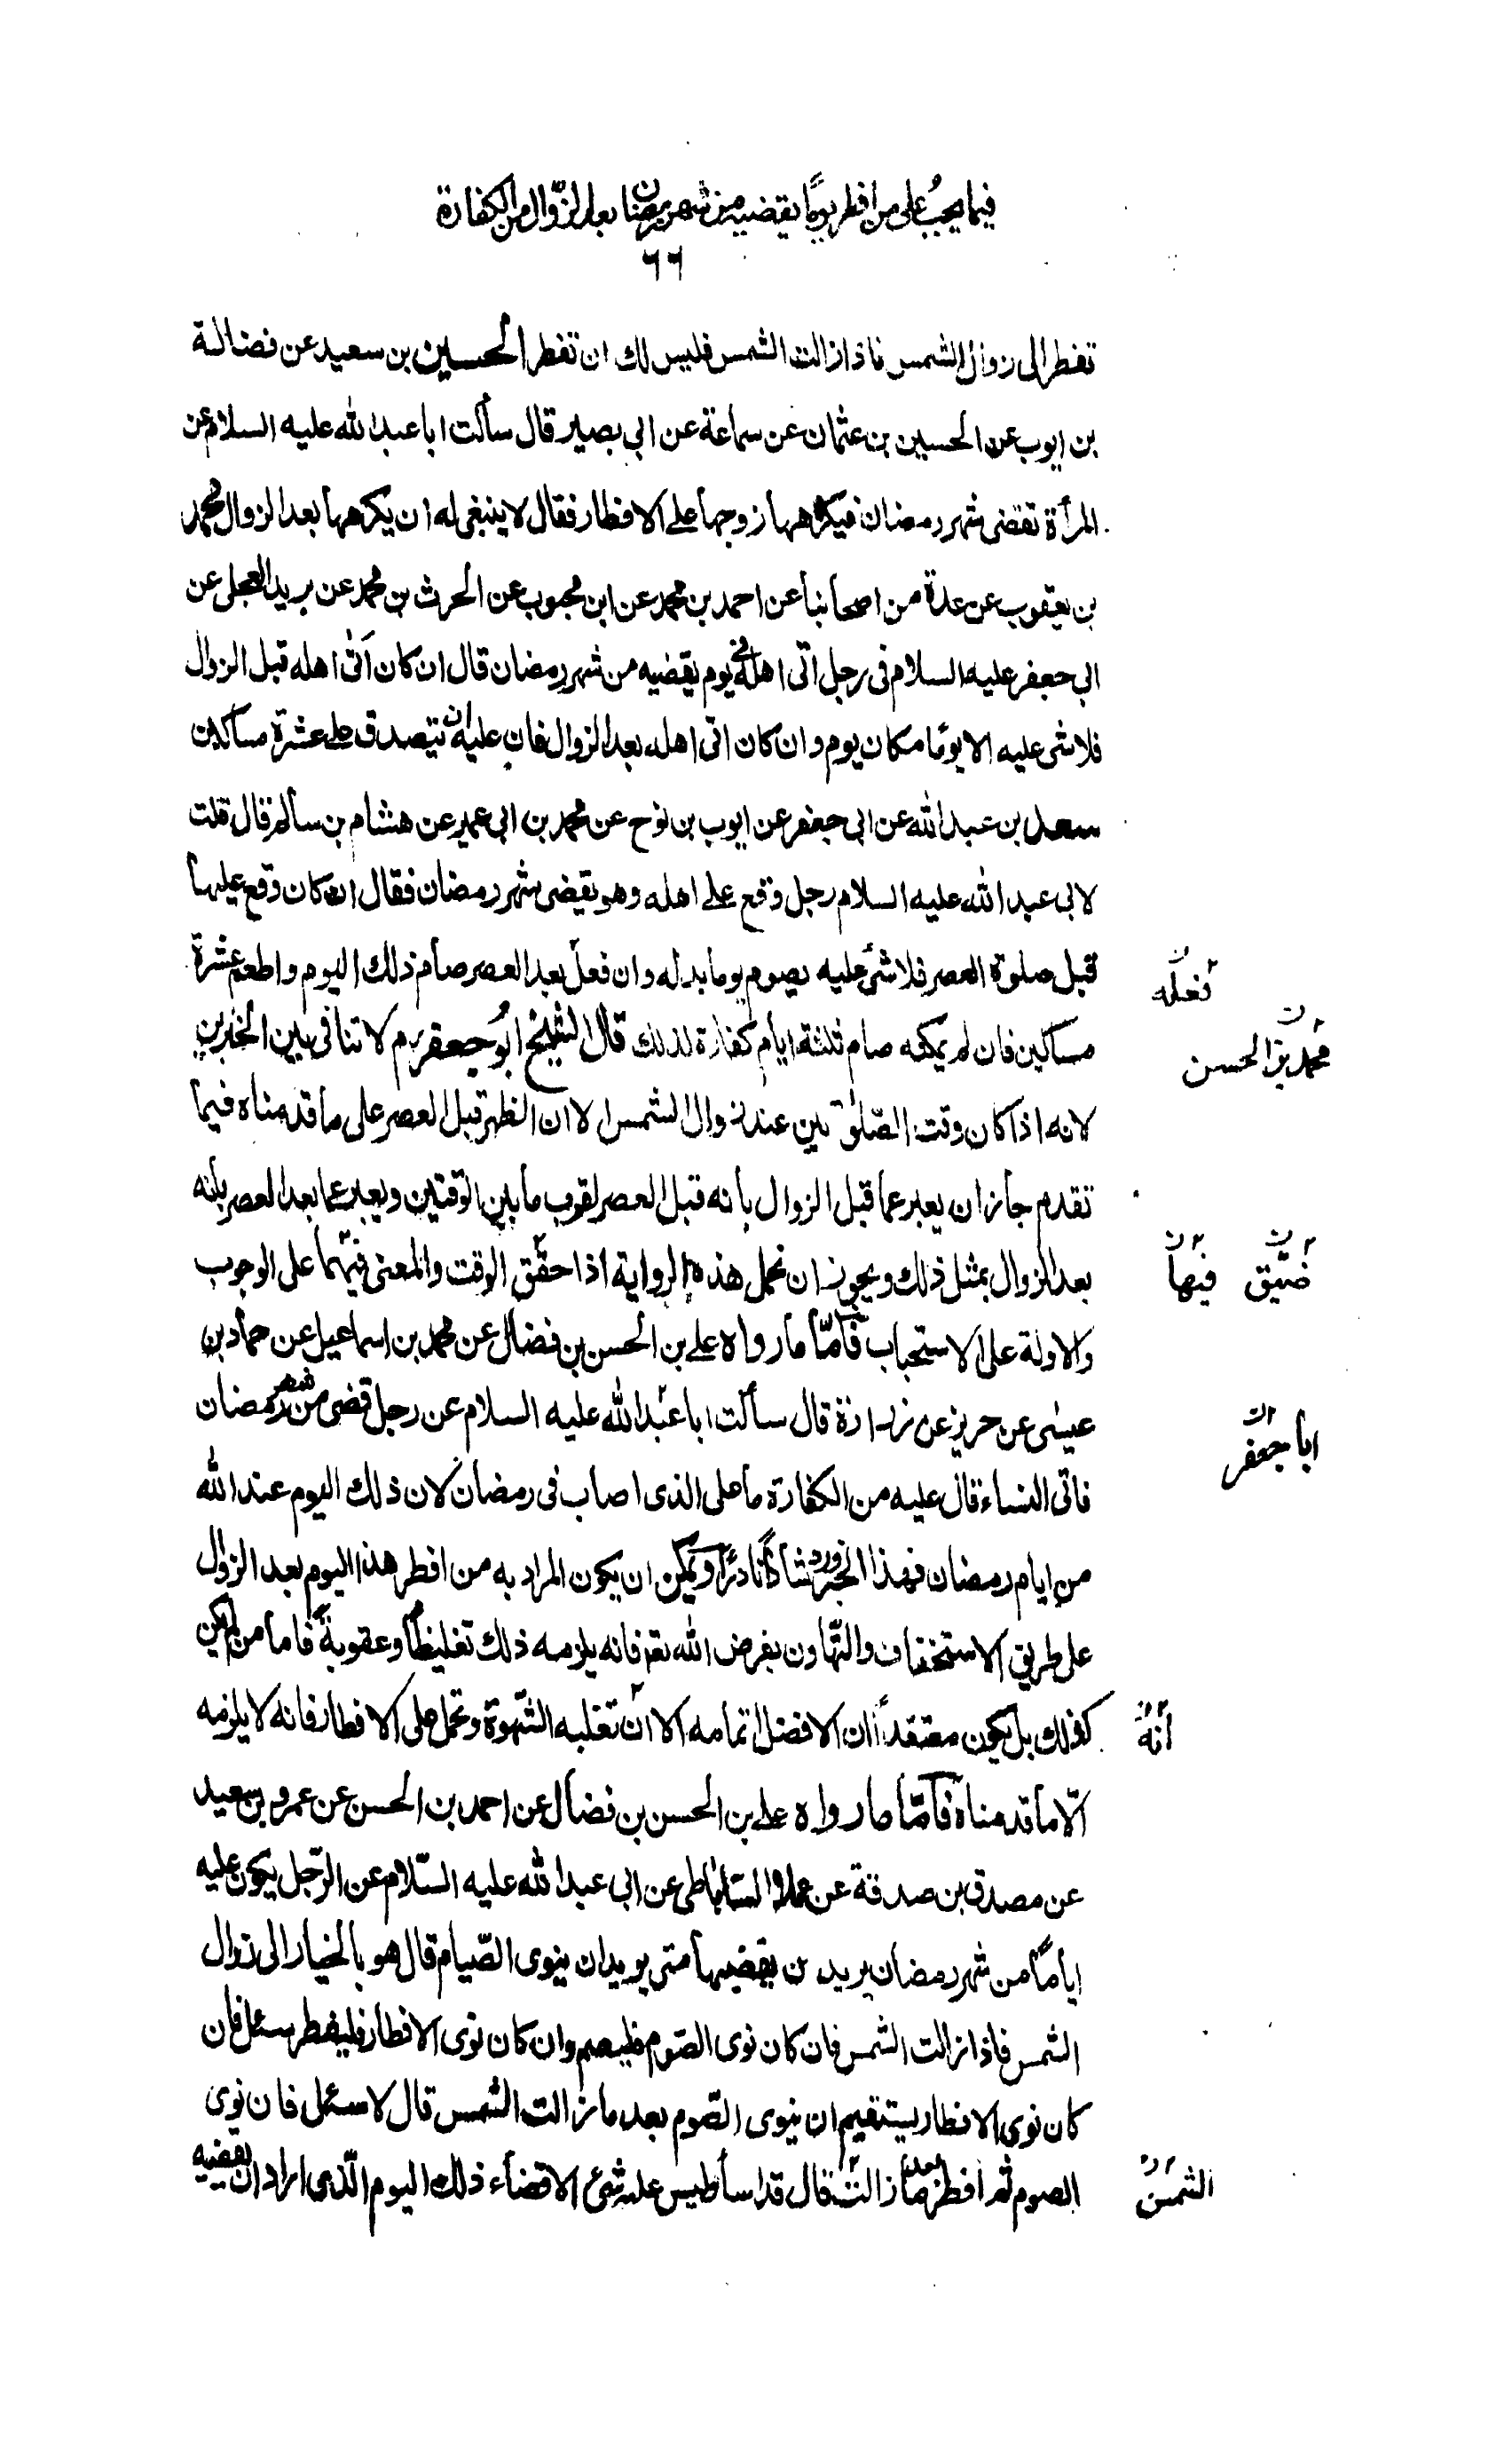 فيما يجب على من افطر يومًا يقضيه من شهر رمضان بعد الزّوال من الكفارة
٦٦
تفطر الى زوال الشمس فاذا زالت الشمس فليس لك ان تفطر الحسين بن سعيد عن فضالة
بن ايوب عن الحسين بن عثمان عن سماعة عن ابي بصير قال سألت ابا عبد الله عليه السلام عن
المرأة تقضى شهر رمضان فيكرهها زوجها على الافطار فقال لا ينبغى له ان يكرهها بعد الزوال محمد
بن يعقوب عن عدة من اصحابنا عن احمد بن محمد عن ابن محبوب عن الحرث بن محمد عن بريد العجلى عن
ابي جعفر عليه السلام فى رجل اتى اهله فى يوم يقضيه من شهر رمضان قال ان كان اتى اهله قبل الزوال
فلا شى عليه الا يومًا مكان يوم وان كان اتى اهله بعد الزوال فان عليه ان يتصدق على عشرة مساكين
سعد بن عبد الله عن ابى جعفر عن ايوب بن نوح عن محمد بن ابى عمير عن هشام بن سالم قال قلت
لابى عبد الله عليه السلام رجل وقع على اهله وهو يقضى شهر رمضان فقال ان كان وقع عليها
قبل صلوة العصر فلا شئ عليه يصوم يوما بدله وان فعل بعد العصر صام ذلك اليوم واطعم عشرة
فعله ن
مساكين فان لم يمكنه صام ثلثة ايام كفارة لذلك قال الشيخ ابو جعفر ره لا تنافى بين الخبرين
محمد بن الحسن ن
لانه اذا كان وقت الصّلوتين عند زوال الشمس الا ان الظهر قبل العصر على ما قدمناه فيما
تقدم جاز ان يعبر عما قبل الزوال بانه قبل العصر لقرب ما بين الوقتين ويعبر عما بعد العصر بانه
بعد الزوال بمثل ذلك ويجوز ان نحمل هذه الرواية اذا حقّق الوقت والمعنى فيهما على الوجوب
ضيّق ن فيها ن
والاولة على الاستحباب فأمّا ما رواه على بن الحسن بن فضال عن محمد بن اسماعيل عن حماد بن
عيسى عن حريز عن زرارة قال سألت ابا عبد الله عليه السلام عن رجل قضى من شهر رمضان
ابا جعفر ن
فاتى النساء قال عليه من الكفارة ما على الذى اصاب فى رمضان لان ذلك اليوم عند الله
من ايام رمضان فهذا الخبر ورد شاذًا نادرًا ويمكن ان يكون المراد به من افطر هذا اليوم بعد الزوال
على طريق الاستخفاف والتّهاون بفرض الله تعه فانه يلزمه ذلك تغليظًا وعقوبةً فاما من لم يكن
كذلك بل يكون معتقدًا ان الافضل اتمامه الا ان تغلبه الشّهوة وتحمل على الافطار فانه لا يلزمه
انّه ن
الّا ما قدمناه فأمّا ما رواه على بن الحسن بن فضال عن احمد بن الحسن عن عمرو بن سعيد
عن مصدق بن صدقة عن عمار الساباطى عن ابى عبد الله عليه السّلام عن الرّجل يكون عليه
ايامًا من شهر رمضان يريد ان يقضيها متى يريد ان ينوى الصّيام قال هو بالخيار الى زوال
الشمس فاذا زالت الشمس فان كان نوى الصّوم فليصم وان كان نوى الافطار فليفطر سئل فان
كان نوى الافطار يستقيم ان ينوى الصّوم بعد ما زالت الشمس قال لا سئل فان نوى
الصوم ثم افطر بعد ما زالت قال قد اساء ليس عليه شئ الا قضاء ذلك اليوم الّذى اراد ان يقضيه
الشمس ن